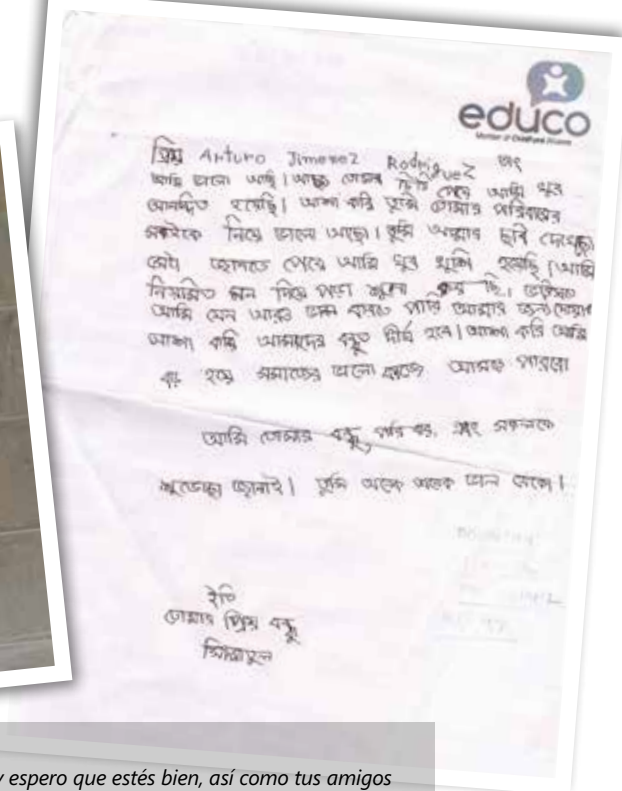 educo
Member of ChildFund Alliance
প্রিয় Arturo Jimenez Rodriguez
আমি ভালো আছি। আজ তোমার চিঠি পেয়ে আমি খুব
আনন্দিত হয়েছি। আশা করি তুমি তোমার পরিবারের
সবাইকে নিয়ে ভালো আছো। তুমি আমার ছবি দেখেছো
জানতে পেরে আমি খুব খুশি হয়েছি। আমি
নিয়মিত মন দিয়ে পড়া
আমি যেন আরও ভাল করতে পারি আমার জন্য দোয়া
আশা করি আমাদের বন্ধুত্ব দীর্ঘ হবে। আশা করি আমি
বড় হয়ে সমাজের ভালো কাজে আসতে পারবো
আমি তোমার বন্ধু, এবং সকলকে
শুভেচ্ছা জানাই। তুমি অনেক অনেক ভাল থেকো।
ইতি
তোমার প্রিয় বন্ধু
y espero que estés bien, así como tus amigos